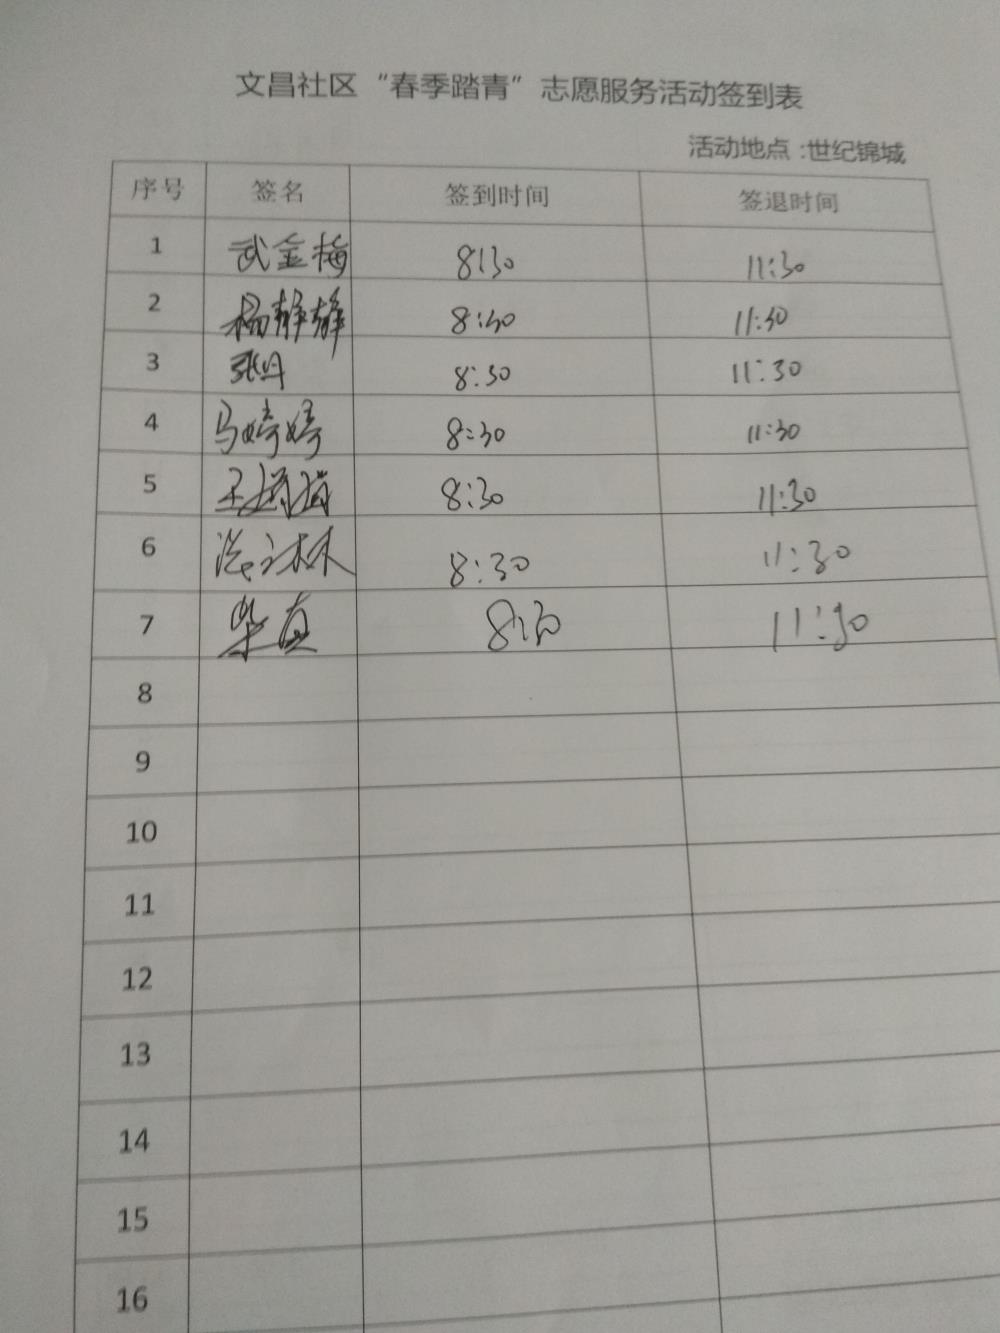 文昌社区“春季踏青”志愿服务活动签到表
活动地点:世纪锦城
序号 签名 签到时间 签退时间
1 武金梅 8:30 11:30
2 杨静静 8:30 11:30
3 张丹 8:30 11:30
4 马婷婷 8:30 11:30
5 王 8:30 11:30
6 林 8:30 11:30
7 8:30 11:30
8
9
10
11
12
13
14
15
16